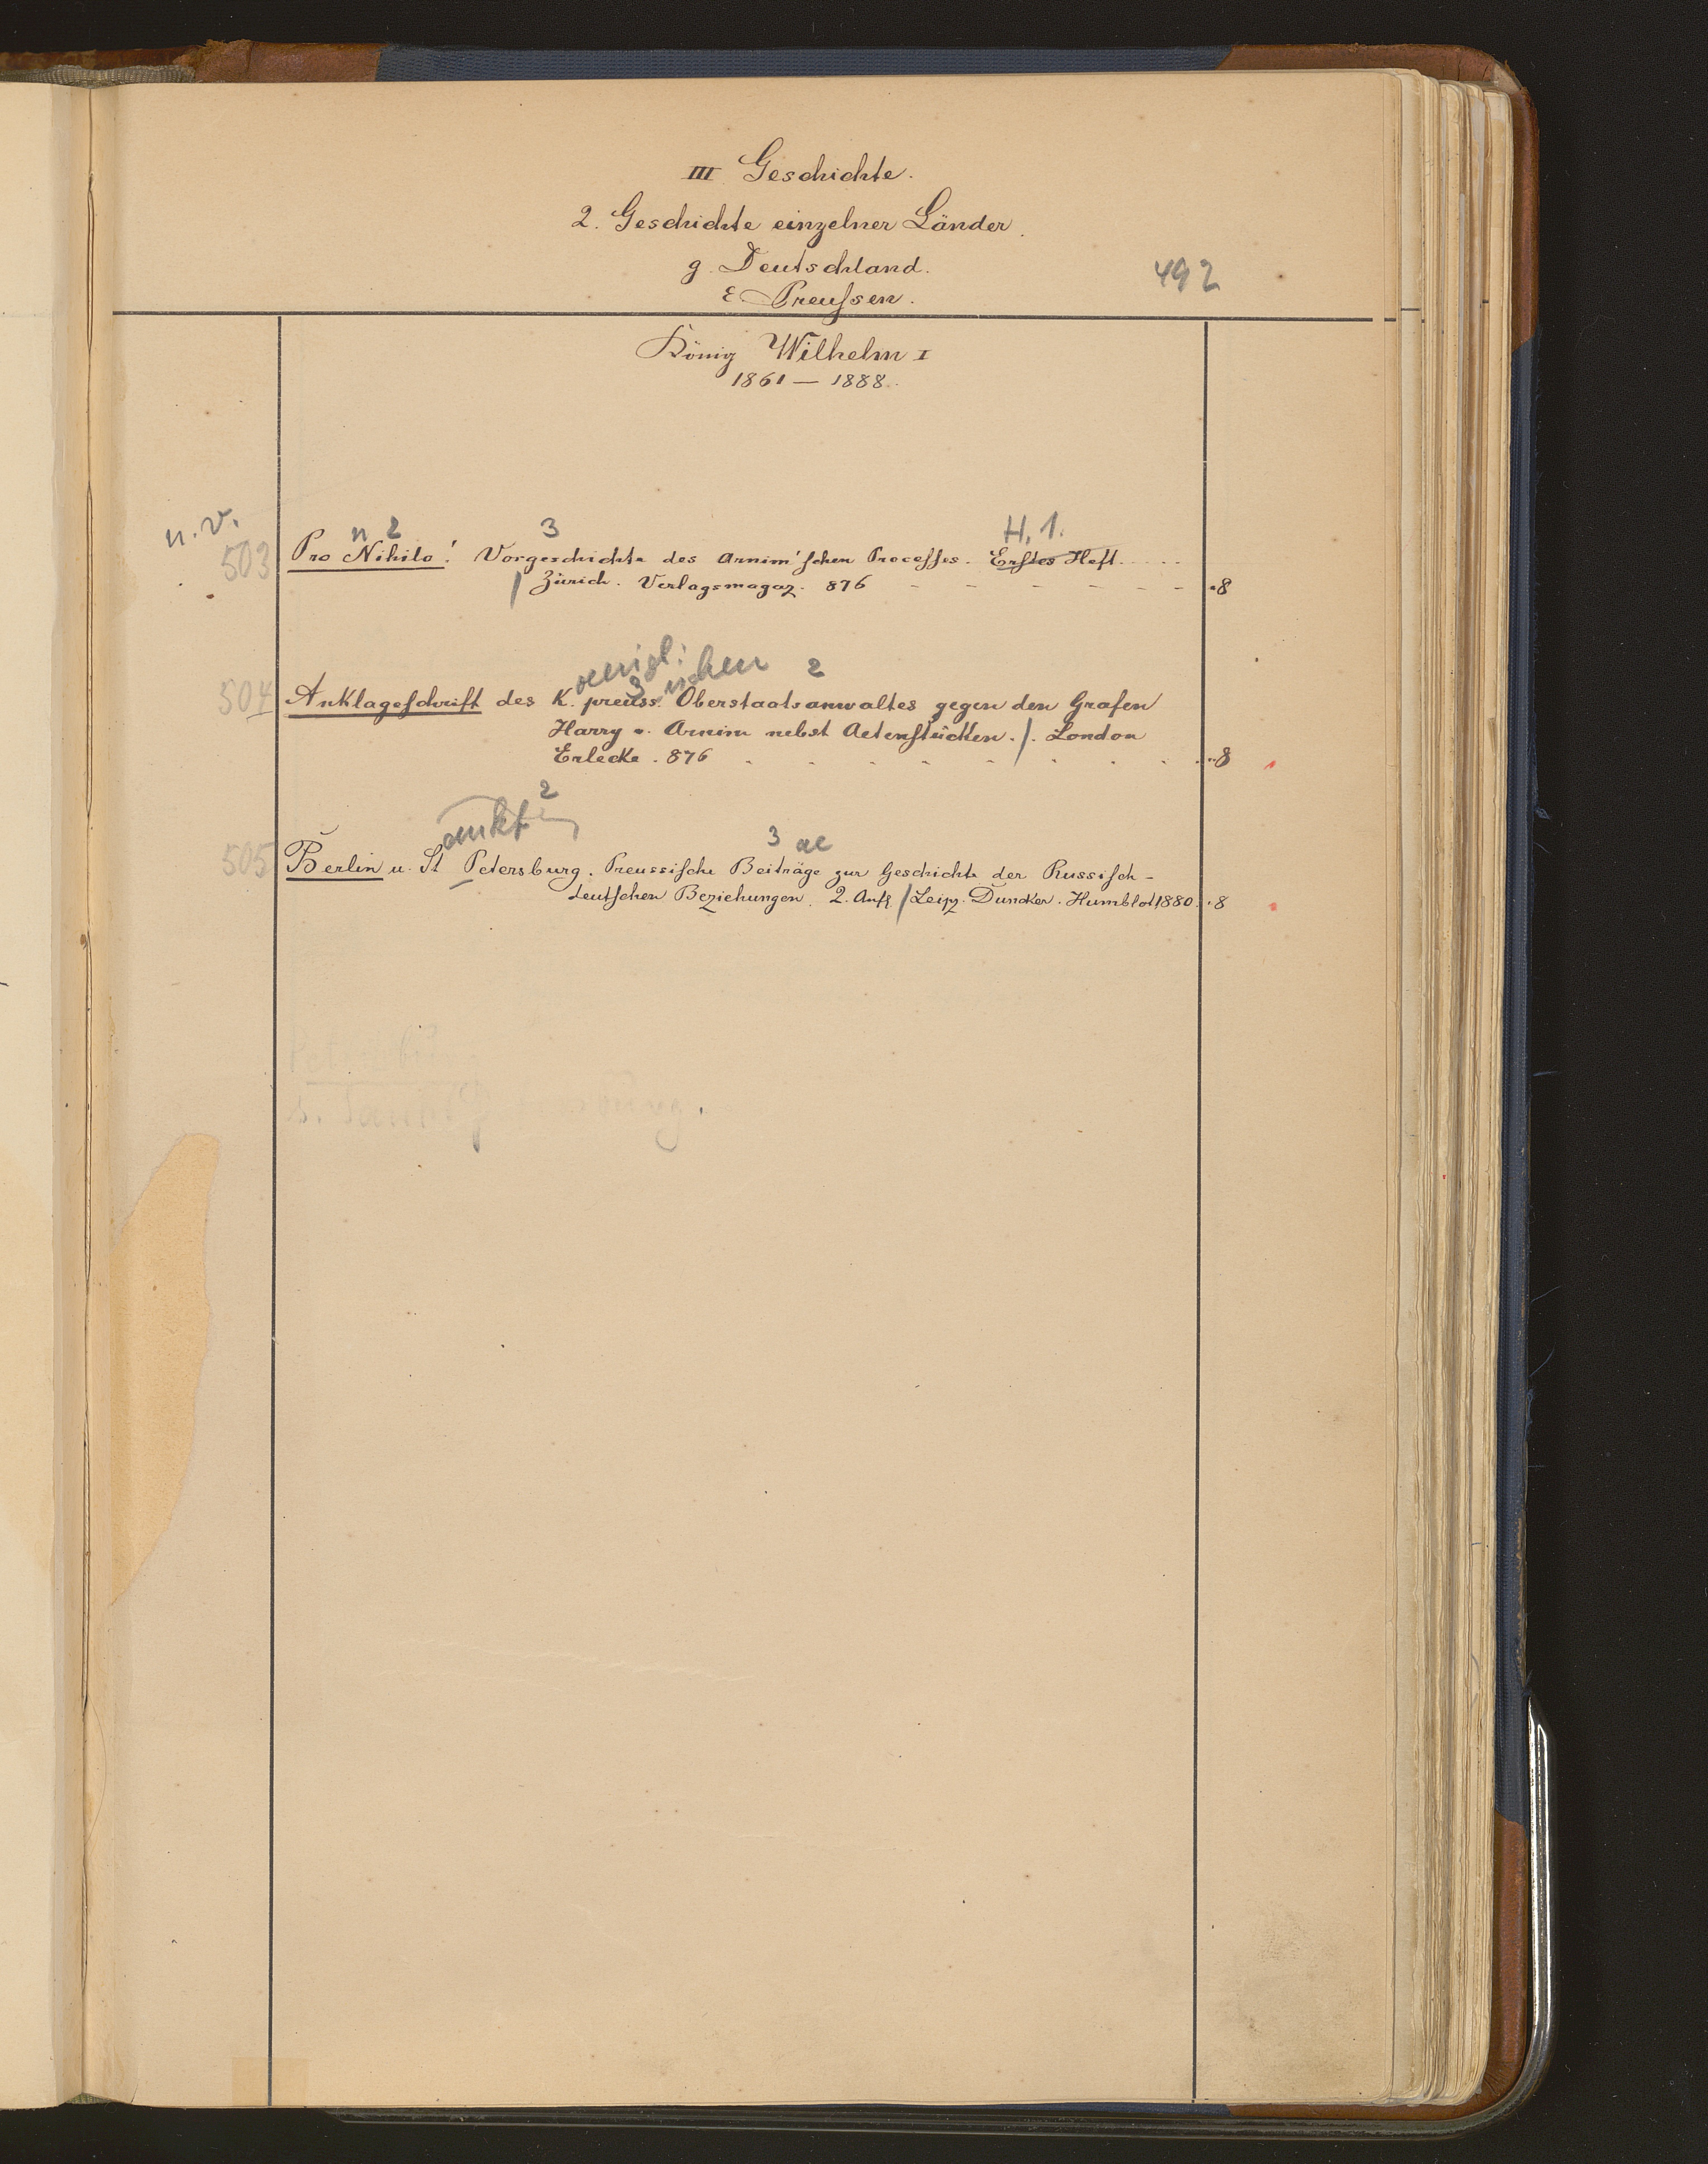 III Geschichte.
2. Geschichte einzelner Länder.
g. Deutschland.
492
ε Preuſsen.
König Wilhelm I
1861 — 1888.
n. v.
n 2 3 H. 1.
503 Pro Nihilo! Vorgeschichte des Arnim'ſchen Proceſſes. Erſtes Heft.....
/ Zürich. Verlagsmagaz. 876 - - - - - - ·8
oenigl: 3 ischen 2
504 Anklageſchrift des K. preuss. Oberstaatsanwaltes gegen den Grafen
Harry v. Arnim nebst Actenſtücken. /. London
Erlecke. 876 . . . . . . . . ·8
ankt 2
3 ae
505 Berlin u. St Petersburg. Preussische Beiträge zur Geschichte der Russiſch-
deutſchen Beziehungen. 2. Aufl. / Leipz. Duncker. Humblot 1880. ·8